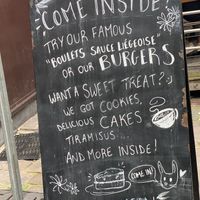 COME INSIDE!
TRY OUR FAMOUS
"BOULETS SAUCE LIÉGEOISE"
OR OUR BURGERS
WANT A SWEET TREAT? :)
WE GOT COOKIES,
DELICIOUS CAKES
TIRAMISUS...
AND MORE INSIDE!
COME IN!